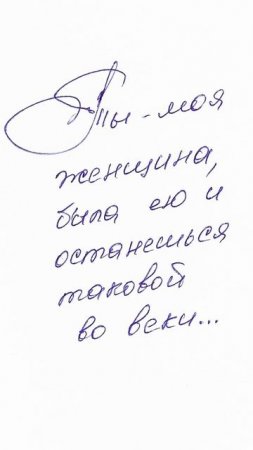 Ты - моя
женщина,
была ею и
останешься
таковой
во веки...